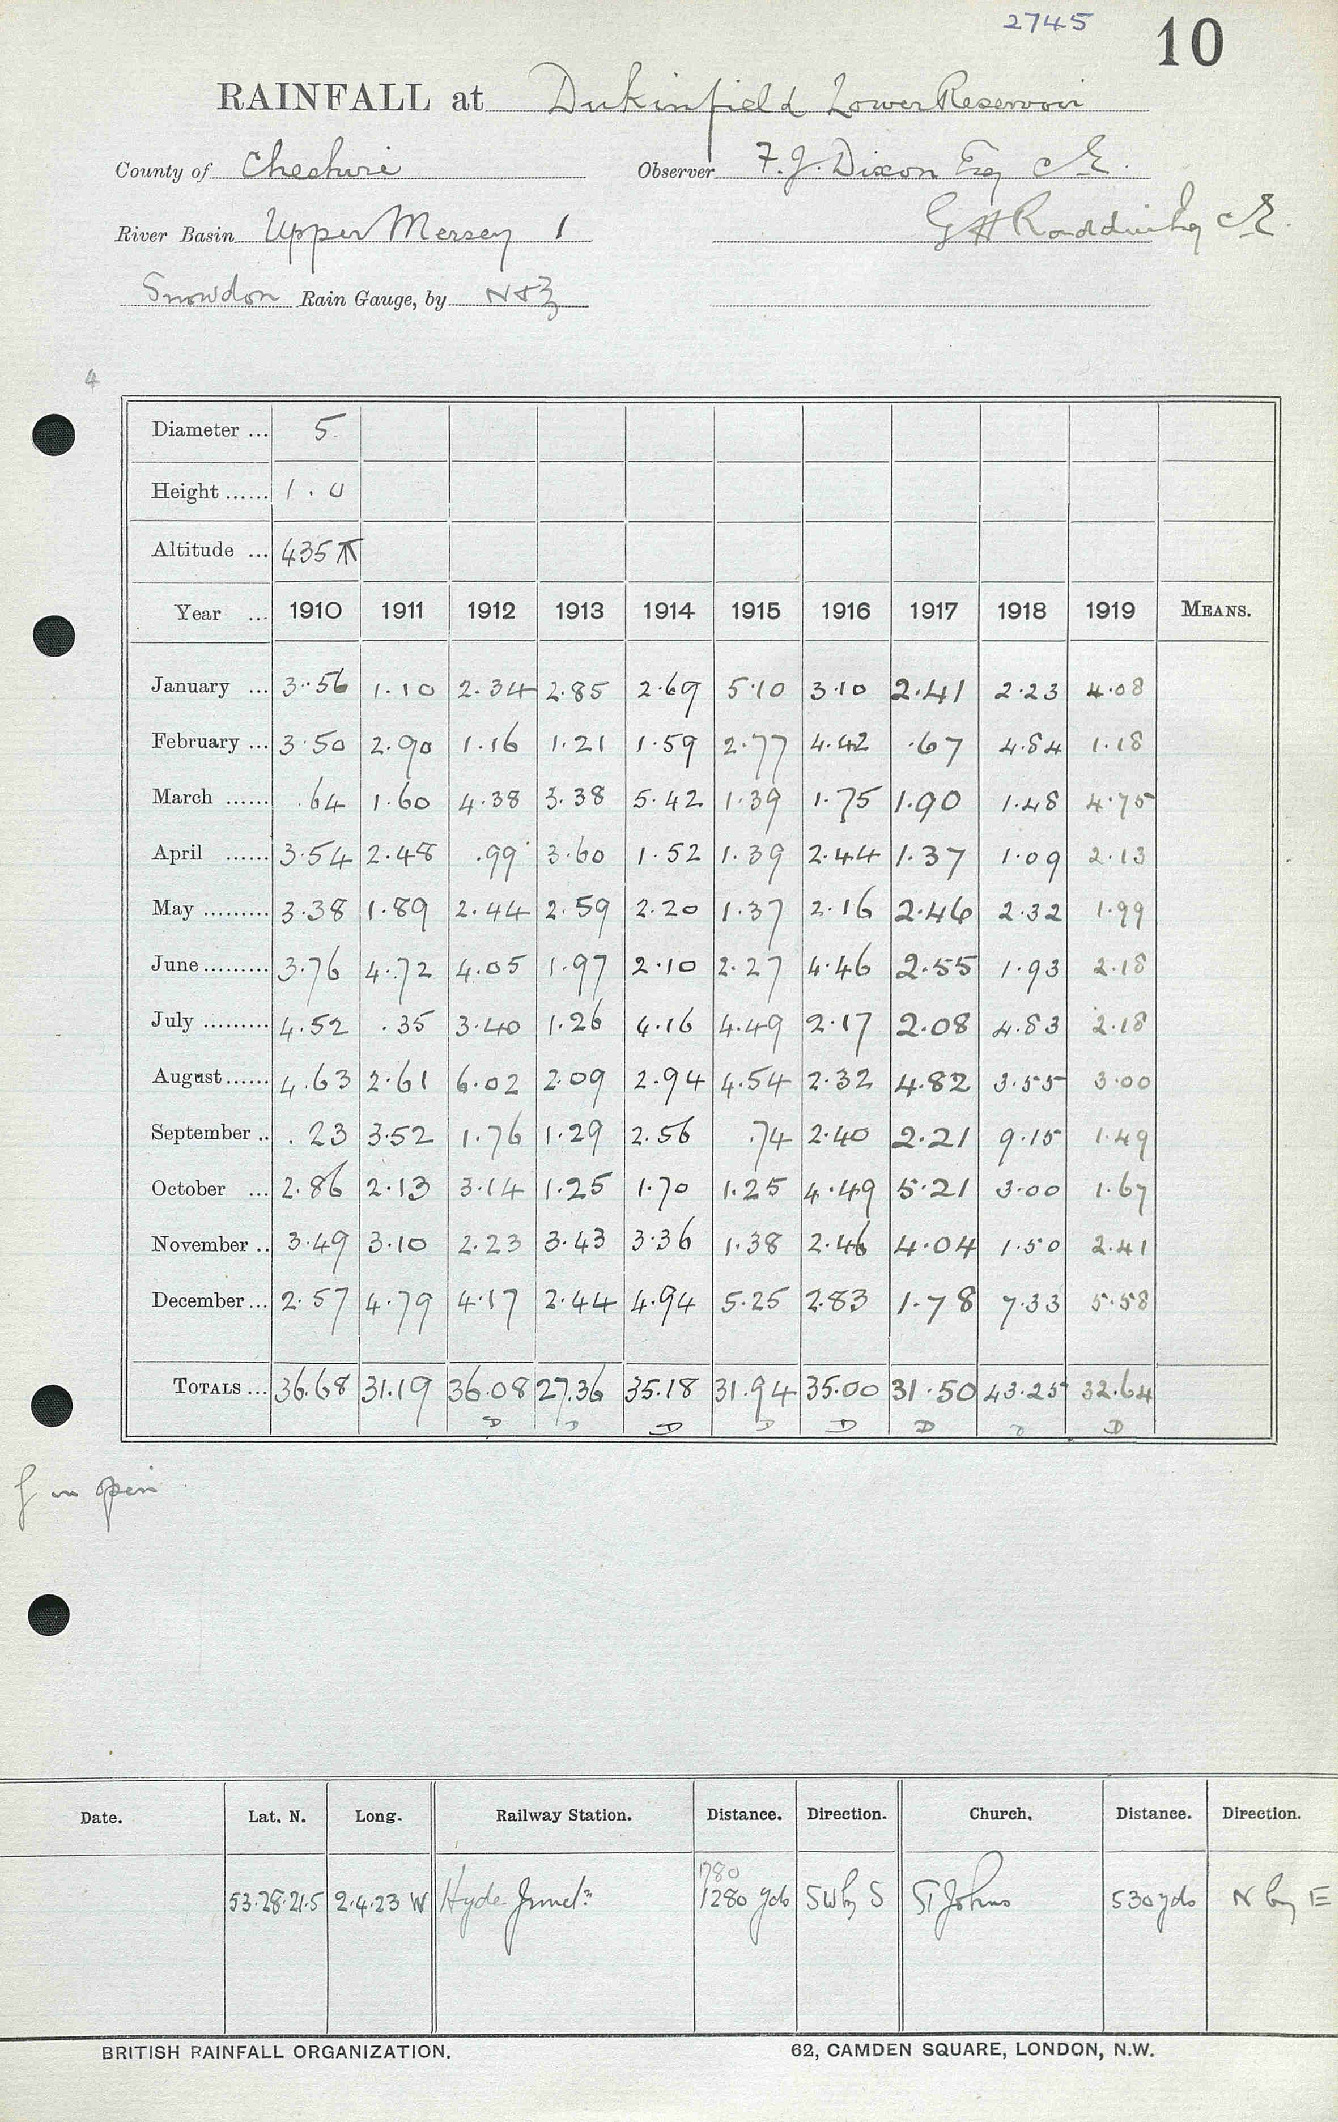 2745 10
RAINFALL at Dukinfield Lower Reservoir
County of Cheshire Observer F. J. Dixon Esq C.E.
River Basin Upper Mersey 1 G H C.E.
Snowdon Rain Gauge, by N&Z
4
Diameter ... 5
Height ...... 1.0
Altitude ... 435
Year ... 1910 1911 1912 1913 1914 1915 1916 1917 1918 1919 MEANS.
January ... 3.56 1.10 2.34 2.85 2.69 5.10 3.10 2.41 2.23 4.08
February ... 3.50 2.90 1.16 1.21 1.59 2.77 4.42 .67 4.84 1.18
March ...... .64 1.60 4.38 3.38 5.42 1.39 1.75 1.90 1.48 4.75
April ...... 3.54 2.48 .99 3.60 1.52 1.39 2.44 1.37 1.09 2.13
May ......... 3.38 1.89 2.44 2.59 2.20 1.37 2.16 2.46 2.32 1.99
June ......... 3.76 4.72 4.05 1.97 2.10 2.27 4.46 2.55 1.93 2.18
July ......... 4.52 .35 3.40 1.26 4.16 4.49 2.17 2.08 4.83 2.18
August ...... 4.63 2.61 6.02 2.09 2.94 4.54 2.32 4.82 3.55 3.00
September .. .23 3.52 1.76 1.29 2.56 .74 2.40 2.21 9.15 1.49
October ... 2.86 2.13 3.14 1.25 1.70 1.25 4.49 5.21 3.00 1.67
November .. 3.49 3.10 2.23 3.43 3.36 1.38 2.46 4.04 1.50 2.41
December ... 2.57 4.79 4.17 2.44 4.94 5.25 2.83 1.78 7.33 5.58
TOTALS ... 36.68 31.19 36.08 27.36 35.18 31.94 35.00 31.50 43.25 32.64
D D D D D D D D
in open
Date. Lat. N. Long. Railway Station. Distance. Direction. Church. Distance. Direction.
780
53.28.21.5 2.4.23 W Hyde Junctn 1280 yds SW by S St Johns 530 yds N by E
BRITISH RAINFALL ORGANIZATION. 62, CAMDEN SQUARE, LONDON, N.W.